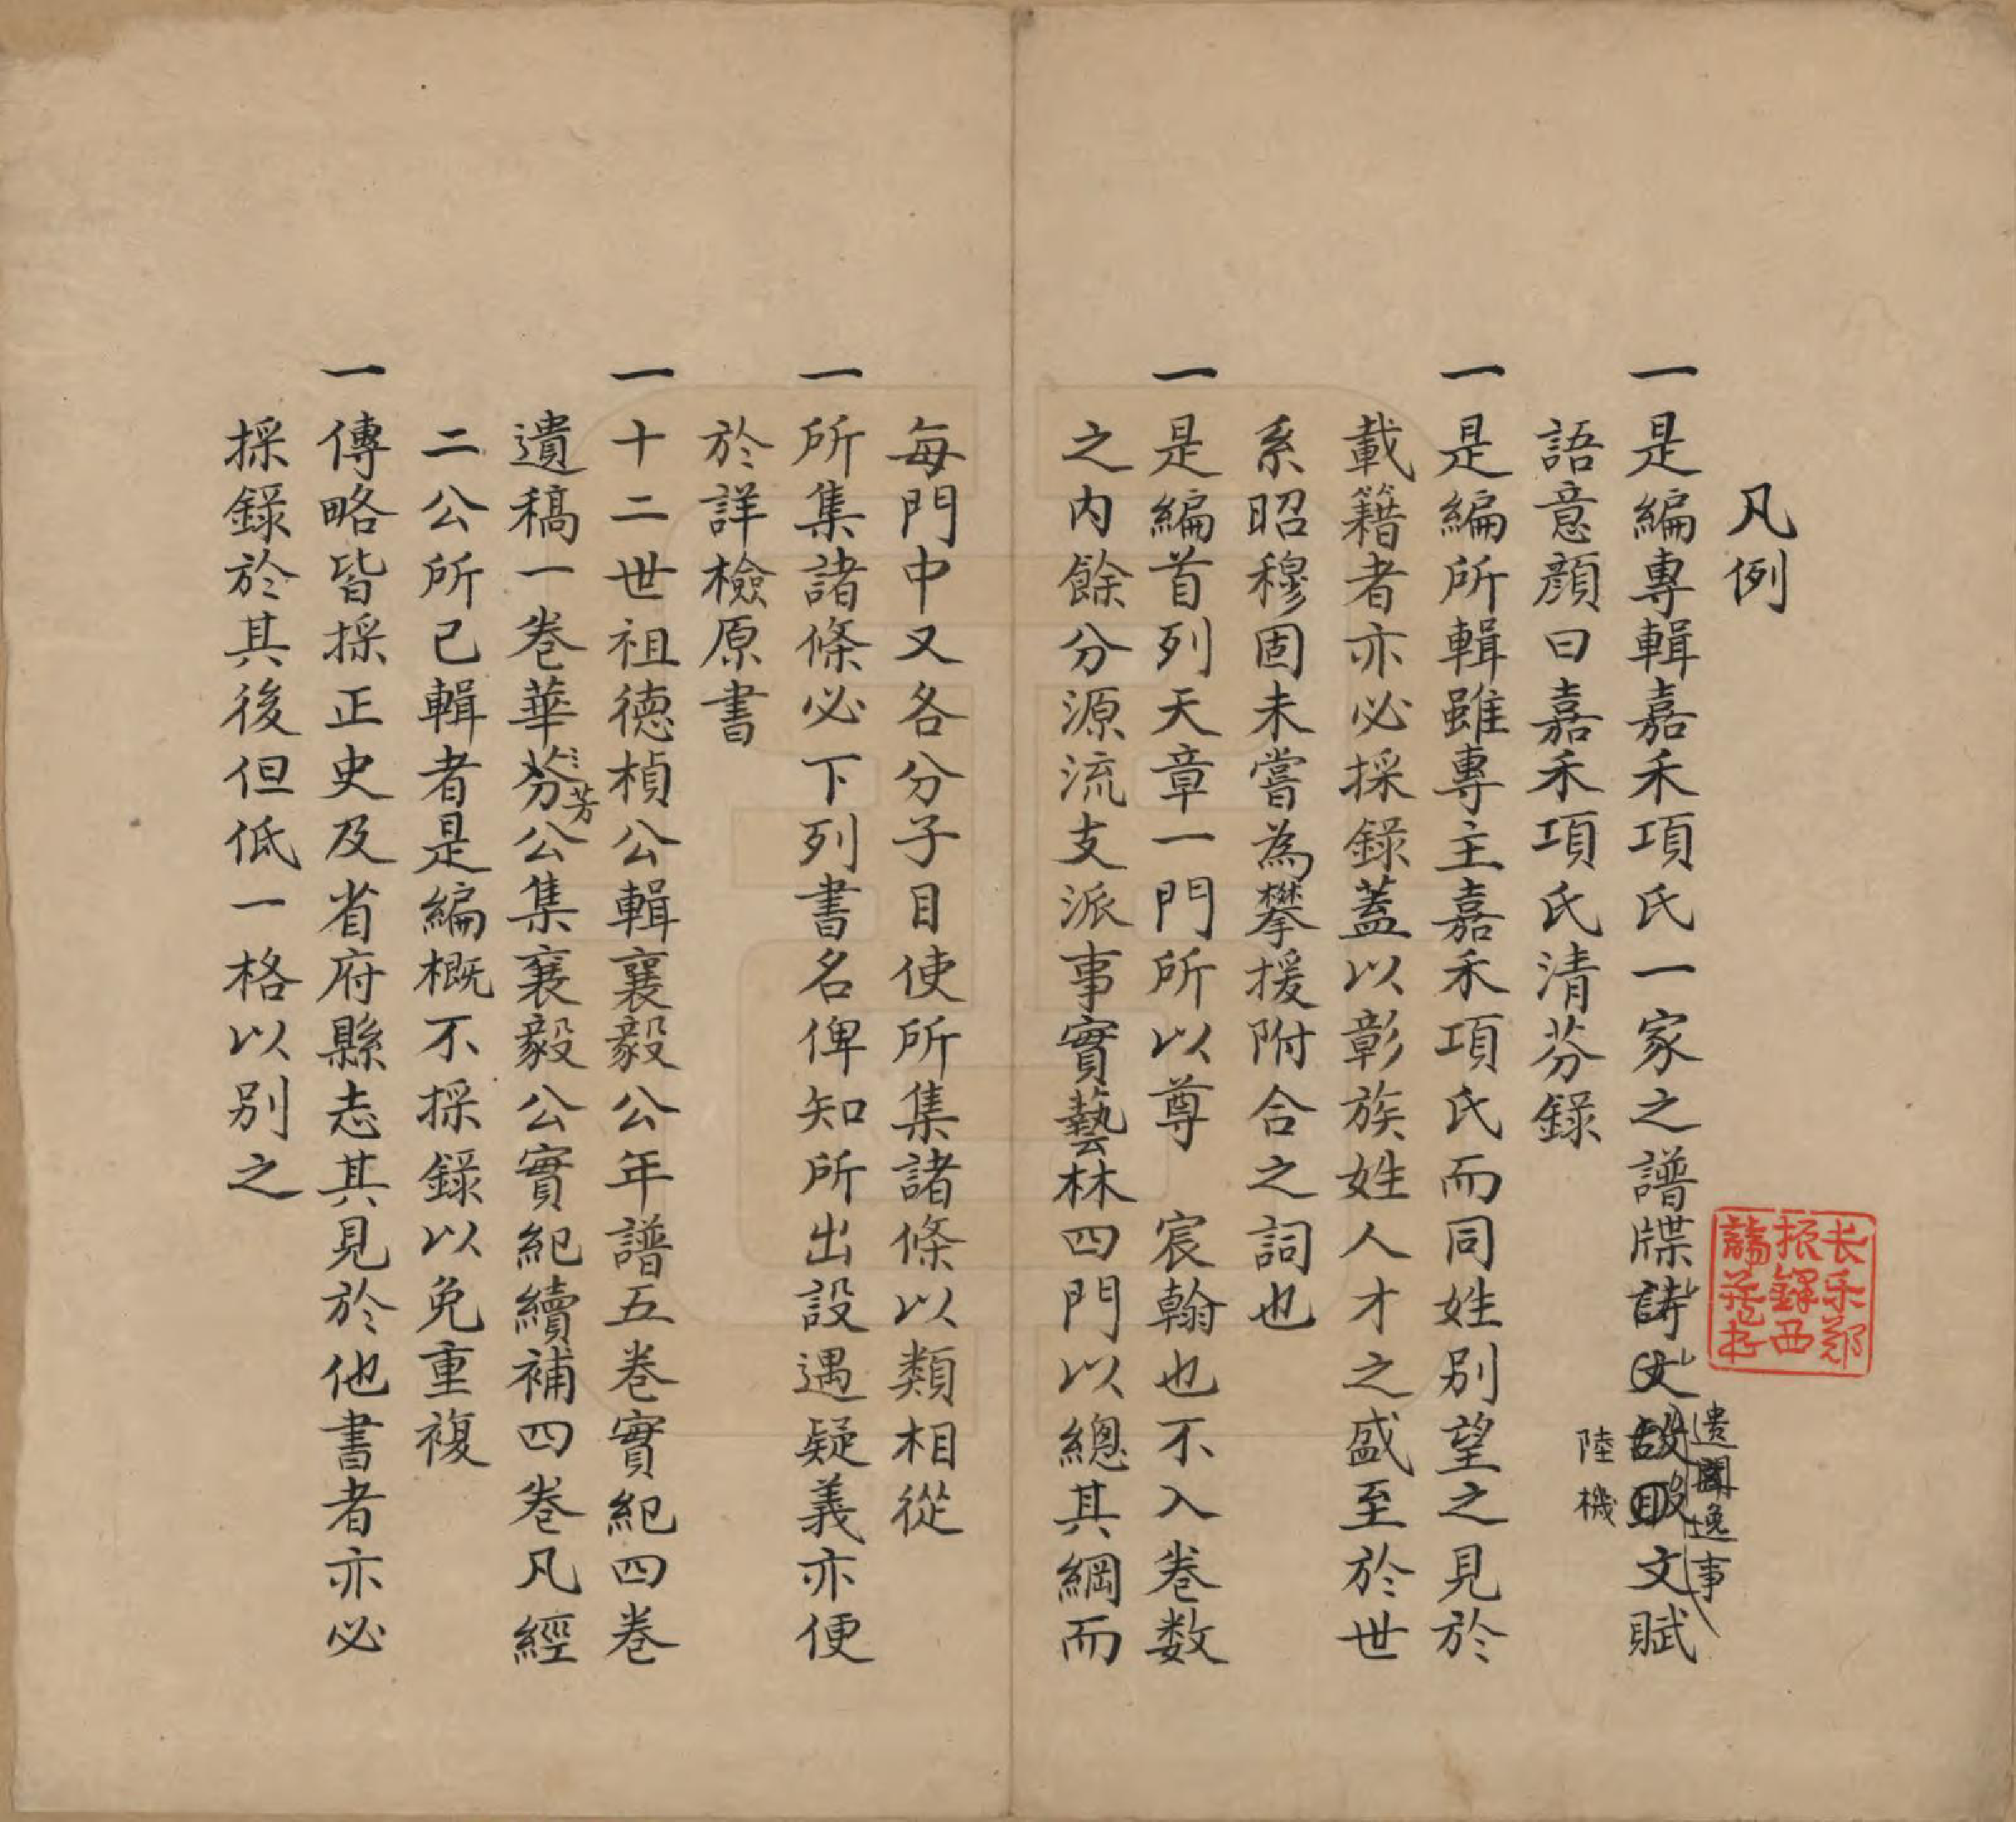 凡例
一是編專輯嘉禾項氏一家之譜牒詩文故取文賦
遺聞逸事
陸機
語意顏曰嘉禾項氏清芬錄
一是編所輯雖專主嘉禾項氏而同姓別望之見於
載籍者亦必採錄蓋以彰族姓人才之盛至於世
系昭穆固未嘗為攀援附合之詞也
一是編首列天章一門所以尊　宸翰也不入卷数
之內餘分源流支派事實藝林四門以總其綱而
每門中又各分子目使所集諸條以類相從
一所集諸條必下列書名俾知所出設遇疑義亦便
於詳檢原書
一十二世祖德楨公輯襄毅公年譜五卷實紀四卷
遺稿一卷華芬公集襄毅公實紀續補四卷凡經
芳
二公所已輯者是編概不採錄以免重複
一傳略皆採正史及省府縣志其見於他書者亦必
採錄於其後但低一格以別之
长乐郑
振鐸西
諦藏书